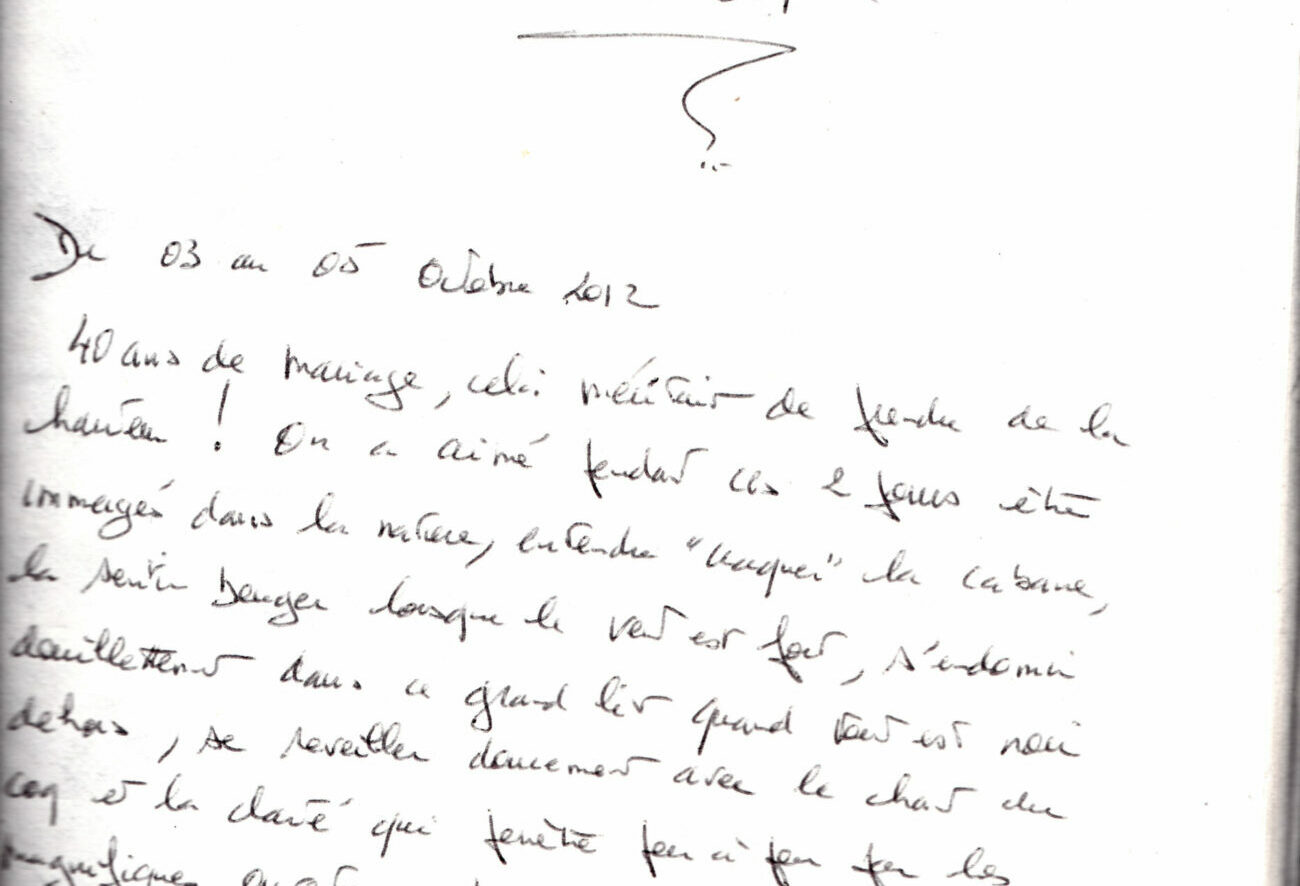 Du 03 au 05 Octobre 2012
40 ans de mariage, cela méritait de prendre de la
hauteur ! On a aimé pendant ces 2 jours être
immergés dans la nature, entendre "craquer" la cabane,
la sentir bouger lorsque le vent est fort, s'endormir
douillettement dans ce grand lit quand tout est noir
dehors, se réveiller doucement avec le chant du
coq et la clarté qui pénètre peu à peu par les
magnifiques